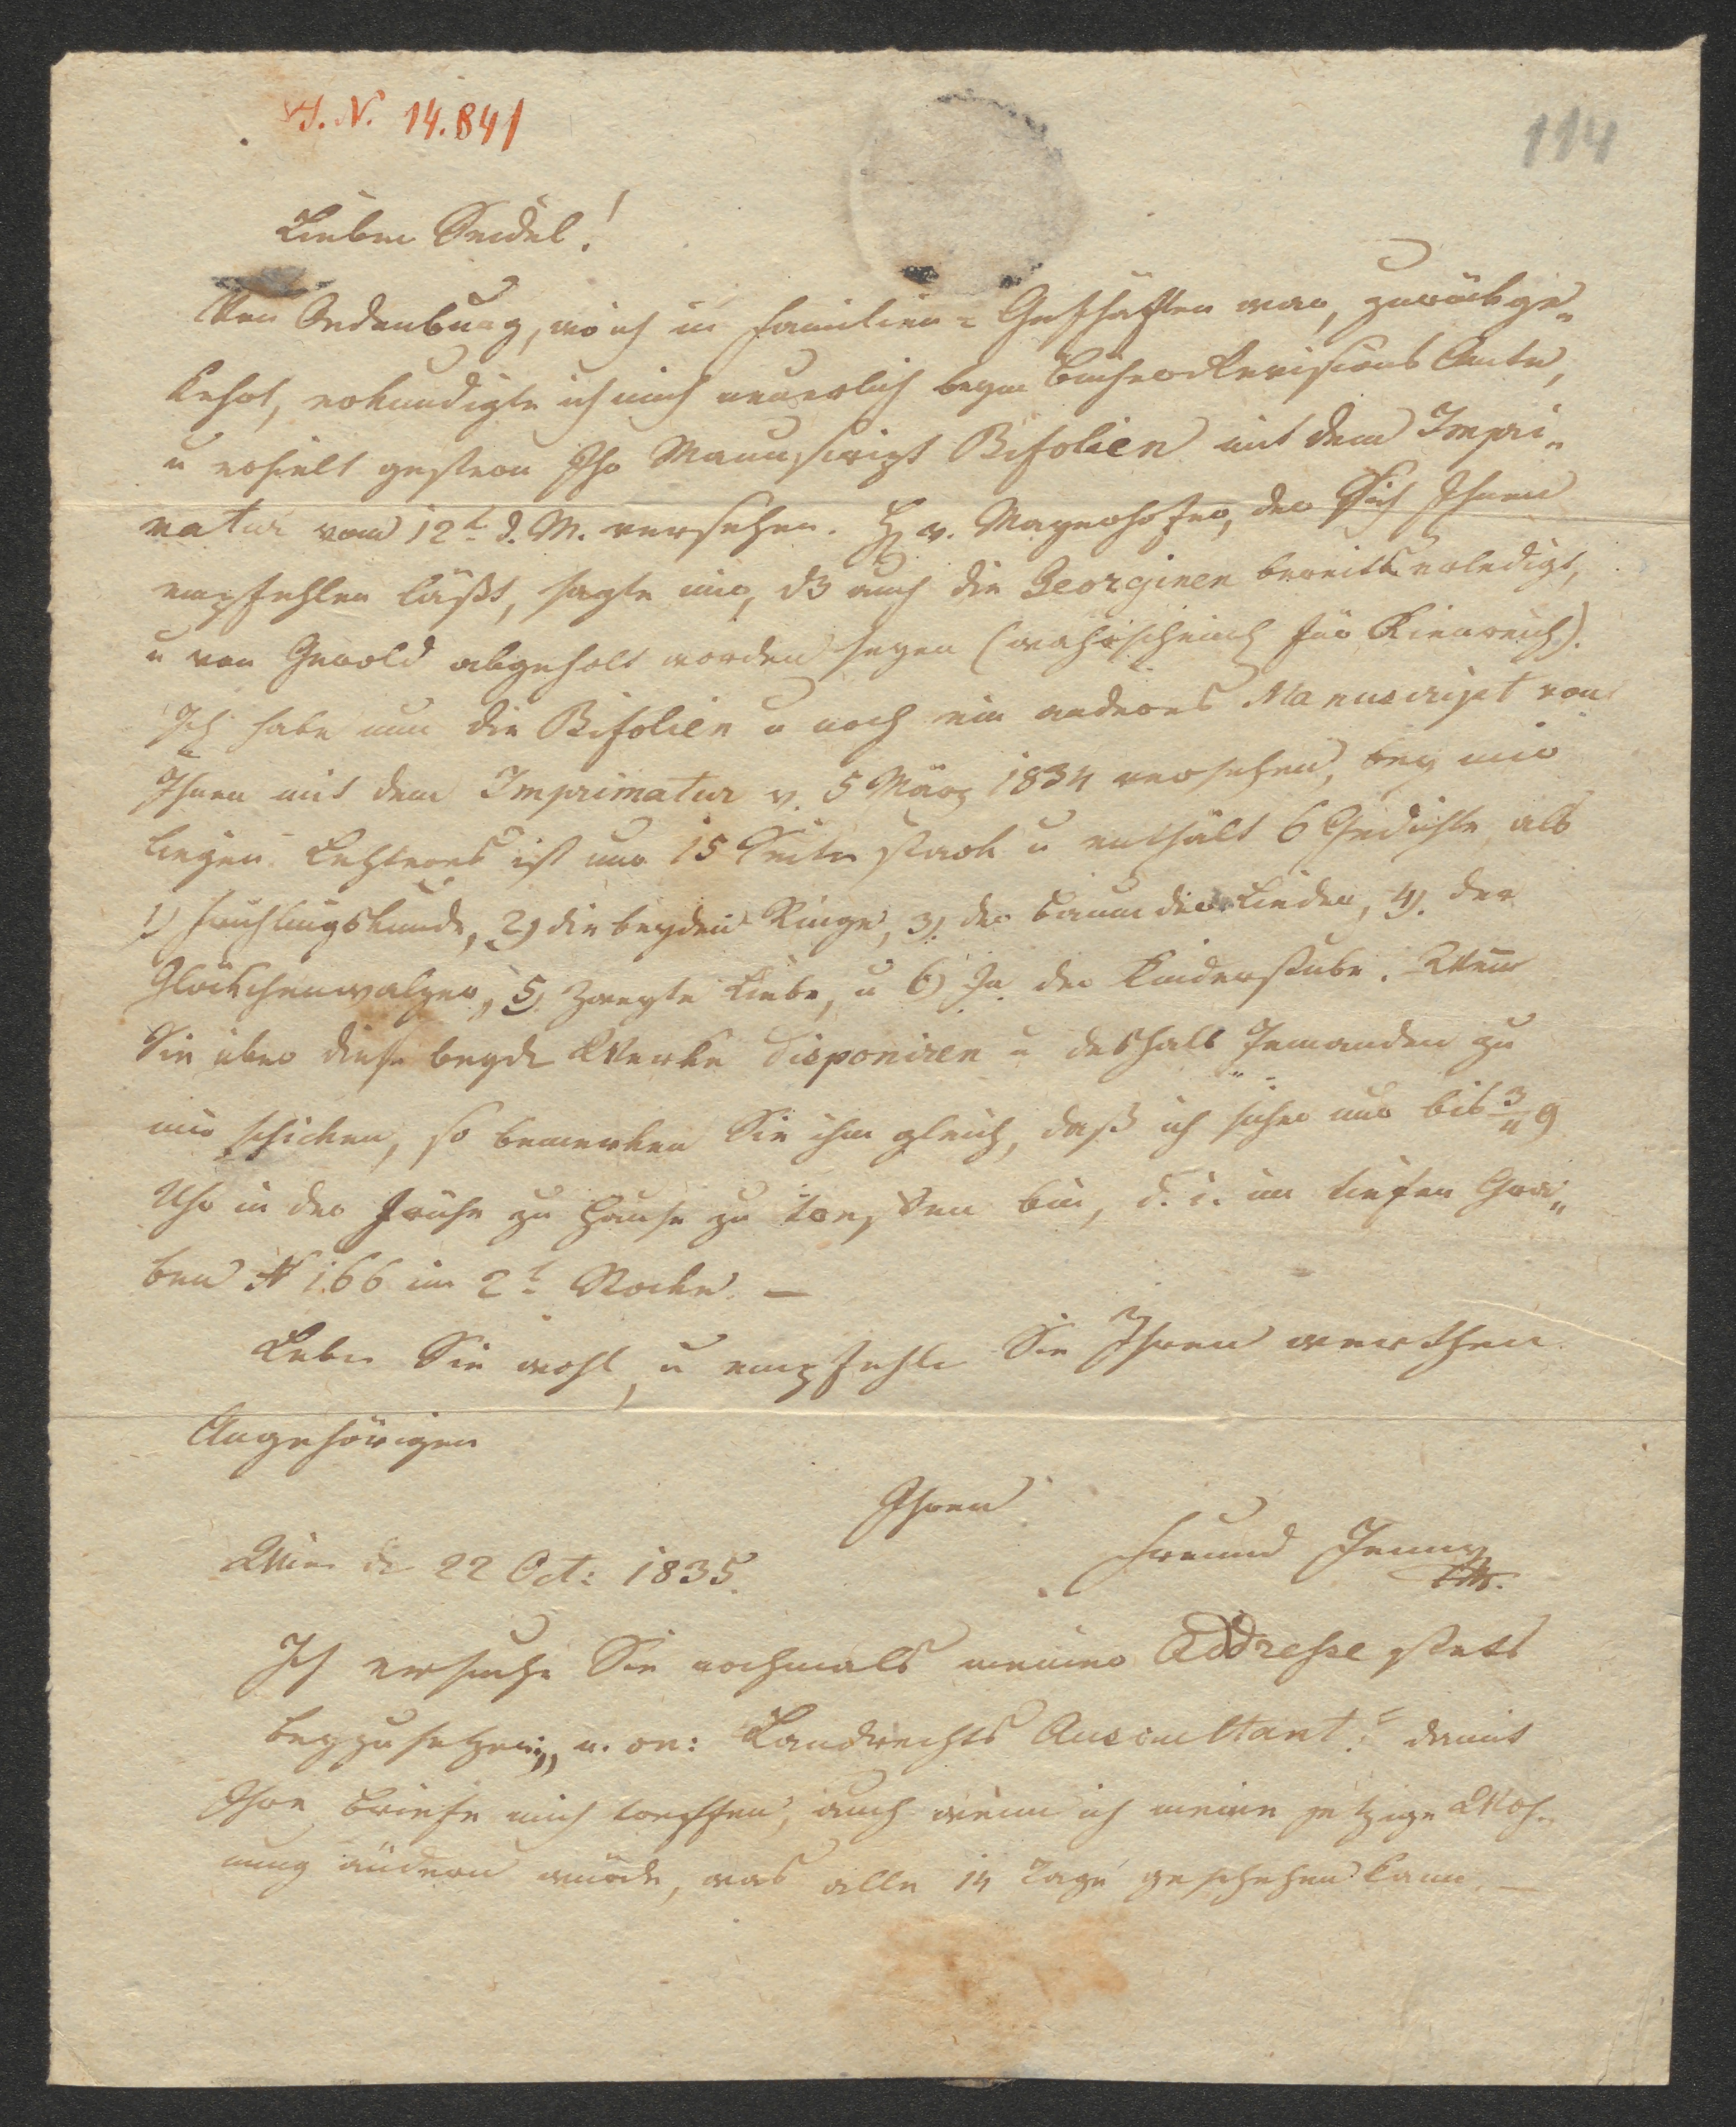 H. N. 14.841
114
Lieber Seidel!
Von Oedenburg, wo ich in Familien-Geschäften war, zurückge„
kehrt, erkundigte ich mich neuerlich beym BücherRevisions Amte,
u erhielt gestern Ihr Manuscript Bifolien mit dem Impri„
matur vom 12t d. M. versehen. H v. Mayerhofer, der sich Ihnen
empfehlen läßt, sagte mir, dß auch die Georginen bereits erledigt,
u von Gerold abgeholt worden seyen (wahrscheinl für Kienreich).
Ich habe nun die Bifolien u noch ein anderes Manuscript von
Ihnen mit dem Imprimatur v. 5 März 1834 versehen, bey mir
liegen. Letzteres ist nur 15 Seiten stark u enthält 6 Gedichte, als
1) Frühlingskunde, 2) die beyden Ringe, 3) der Baum der Lieder, 4) der
Glöckchenwalzer, 5) Zweyte Liebe, u 6) In der Kinderstube. Wenn
Sie über diese beyde Werke disponiren u deshalb Jemanden zu
mir schicken, so bemerken Sie ihm gleich, daß ich sicher nur bis 3/4 9
Uhr in der Frühe zu Hause zu treffen bin, d. i. im tiefen Gra„
ben N 166 im 2t Stocke. —
Leben Sie wohl, u empfehlen Sie Ihren werthen
Angehörigen
Ihren
Freund Jenny
Wien de 22 Oct: 1835.
Ich ersuche Sie nochmals meiner Addresse stets
beyzusetzen: „n. ön: Landrechts Auscultant“ damit
Ihre Briefe mich treffen, auch wenn ich meine jetzige Woh„
nung ändern würde, was alle 14 Tage geschehen kann. —